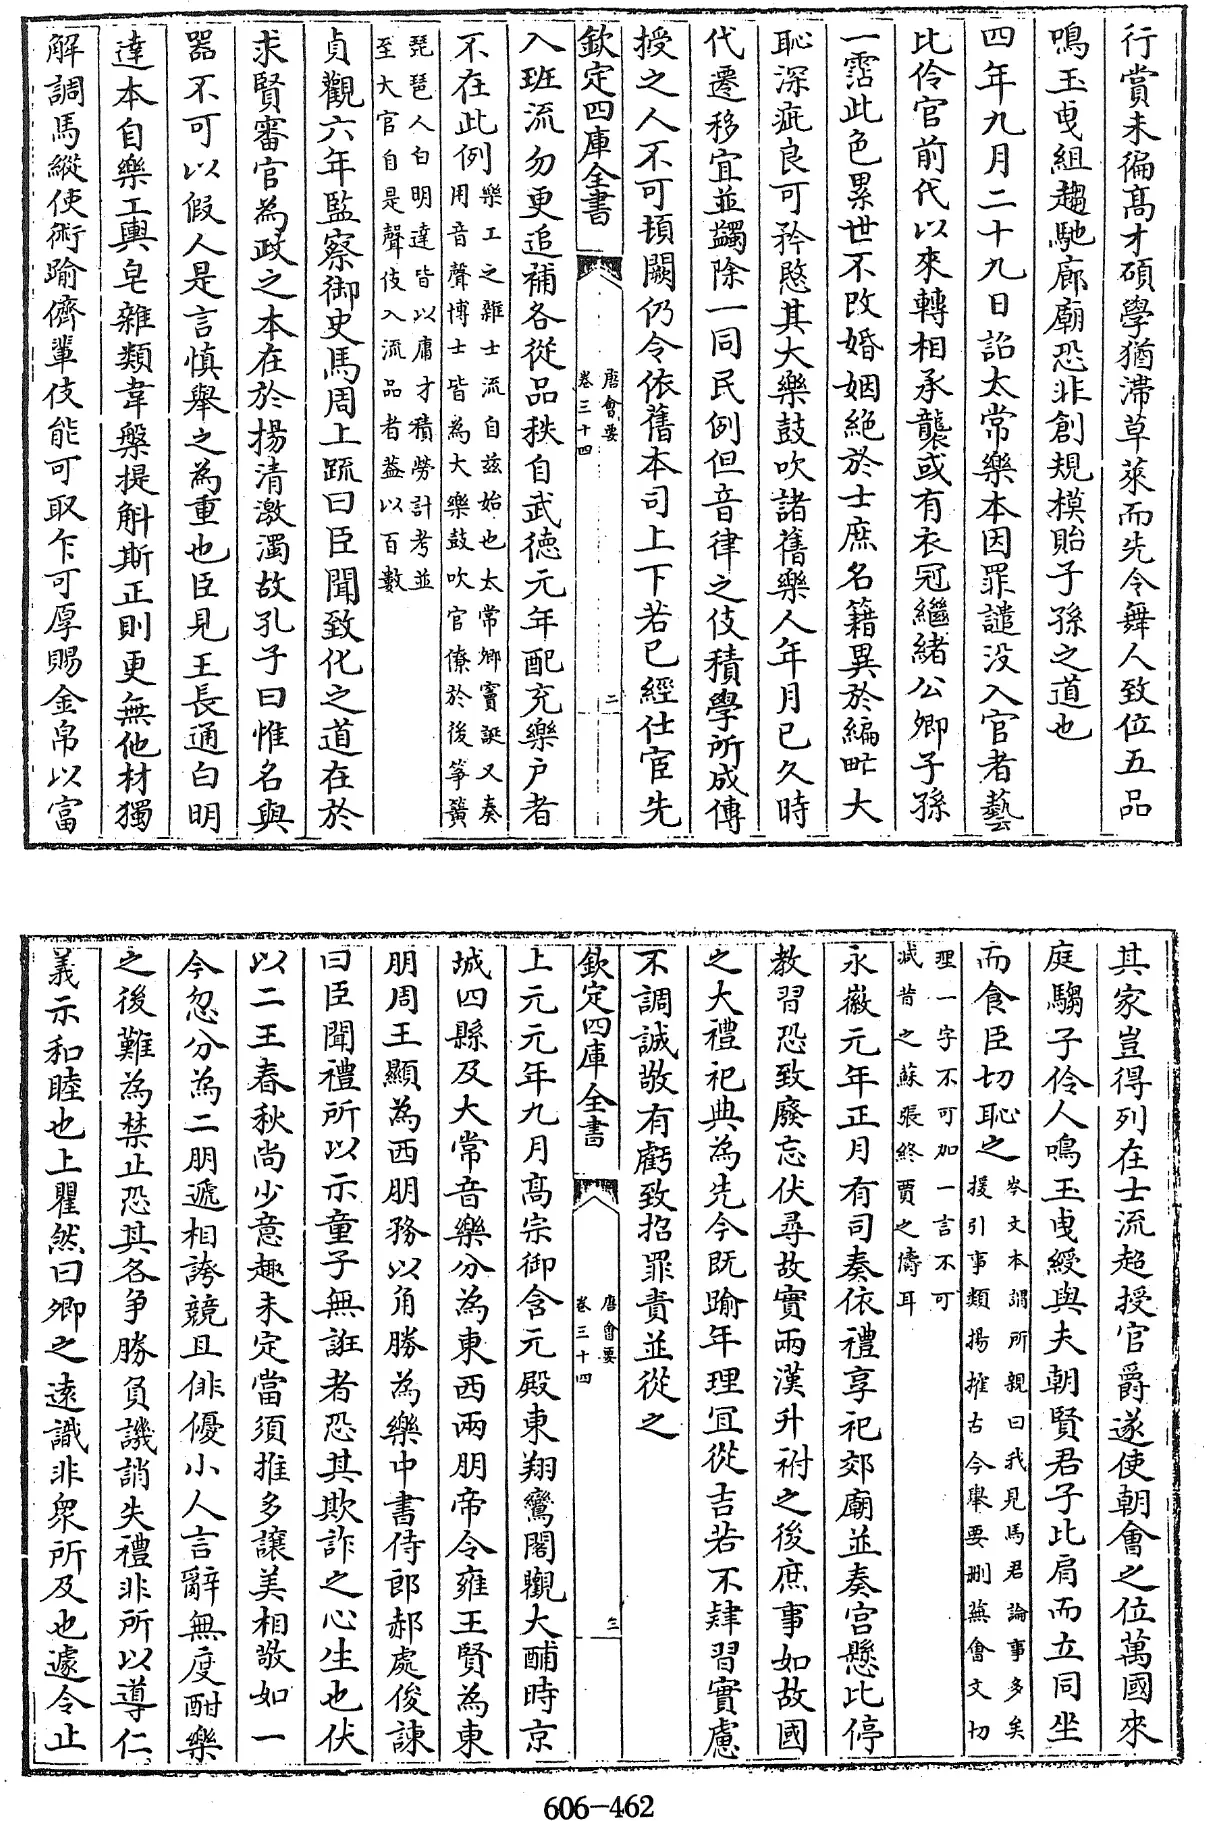 行賞未徧髙才碩學猶滯草萊而先令舞人致位五品
鳴玉曳組趨馳廊廟恐非創規模貽子孫之道也
四年九月二十九日詔太常樂本因罪譴没入官者藝
比伶官前代以來轉相承襲或有衣冠繼緒公卿子孫
一霑此色累世不改婚姻絶於士庶名籍異於編甿大
恥深疵良可矜愍其大樂鼓吹諸舊樂人年月已久時
代遷移宜並蠲除一同民例但音律之伎積學所成傳
授之人不可頓闕仍令依舊本司上下若已經仕宦先
欽定四庫全書
唐會要
卷三十四
二
入班流勿更追補各從品秩自武徳元年配充樂户者
不在此例
樂工之雜士流自兹始也太常卿竇誕又奏
用音聲博士皆為大樂鼓吹官僚於後筝簧
琵琶人白明達皆以庸才積勞計考並
至大官自是聲伎入流品者葢以百數
貞觀六年監察御史馬周上疏曰臣聞致化之道在於
求賢審官為政之本在於揚清激濁故孔子曰惟名與
器不可以假人是言慎舉之為重也臣見王長通白明
達本自樂工輿皂雜類韋槃提斛斯正則更無他材獨
解調馬縱使術踰儕輩伎能可取乍可厚賜金帛以富
其家豈得列在士流超授官爵遂使朝會之位萬國來
庭騶子伶人鳴玉曳綬與夫朝賢君子比肩而立同坐
而食臣切恥之
岑文本謂所親曰我見馬君論事多矣
援引事類揚搉古今舉要刪蕪會文切
理一字不可加一言不可
减昔之蘇張終賈之儔耳
永徽元年正月有司奏依禮享祀郊廟並奏宫懸比停
教習恐致廢忘伏尋故實兩漢升祔之後庶事如故國
之大禮祀典為先今既踰年理宜從吉若不肄習實慮
不調誠敬有虧致招罪責並從之
欽定四庫全書
唐會要
卷三十四
三
上元元年九月髙宗御含元殿東翔鸞閣觀大酺時京
城四縣及大常音樂分為東西兩朋帝令雍王賢為東
朋周王顯為西朋務以角勝為樂中書侍郎郝處俊諫
曰臣聞禮所以示童子無誑者恐其欺詐之心生也伏
以二王春秋尚少意趣未定當須推多讓美相敬如一
今忽分為二朋遞相誇競且俳優小人言辭無度酣樂
之後難為禁止恐其各争勝負譏誚失禮非所以導仁
義示和睦也上瞿然曰卿之逺識非衆所及也遽令止
606-462